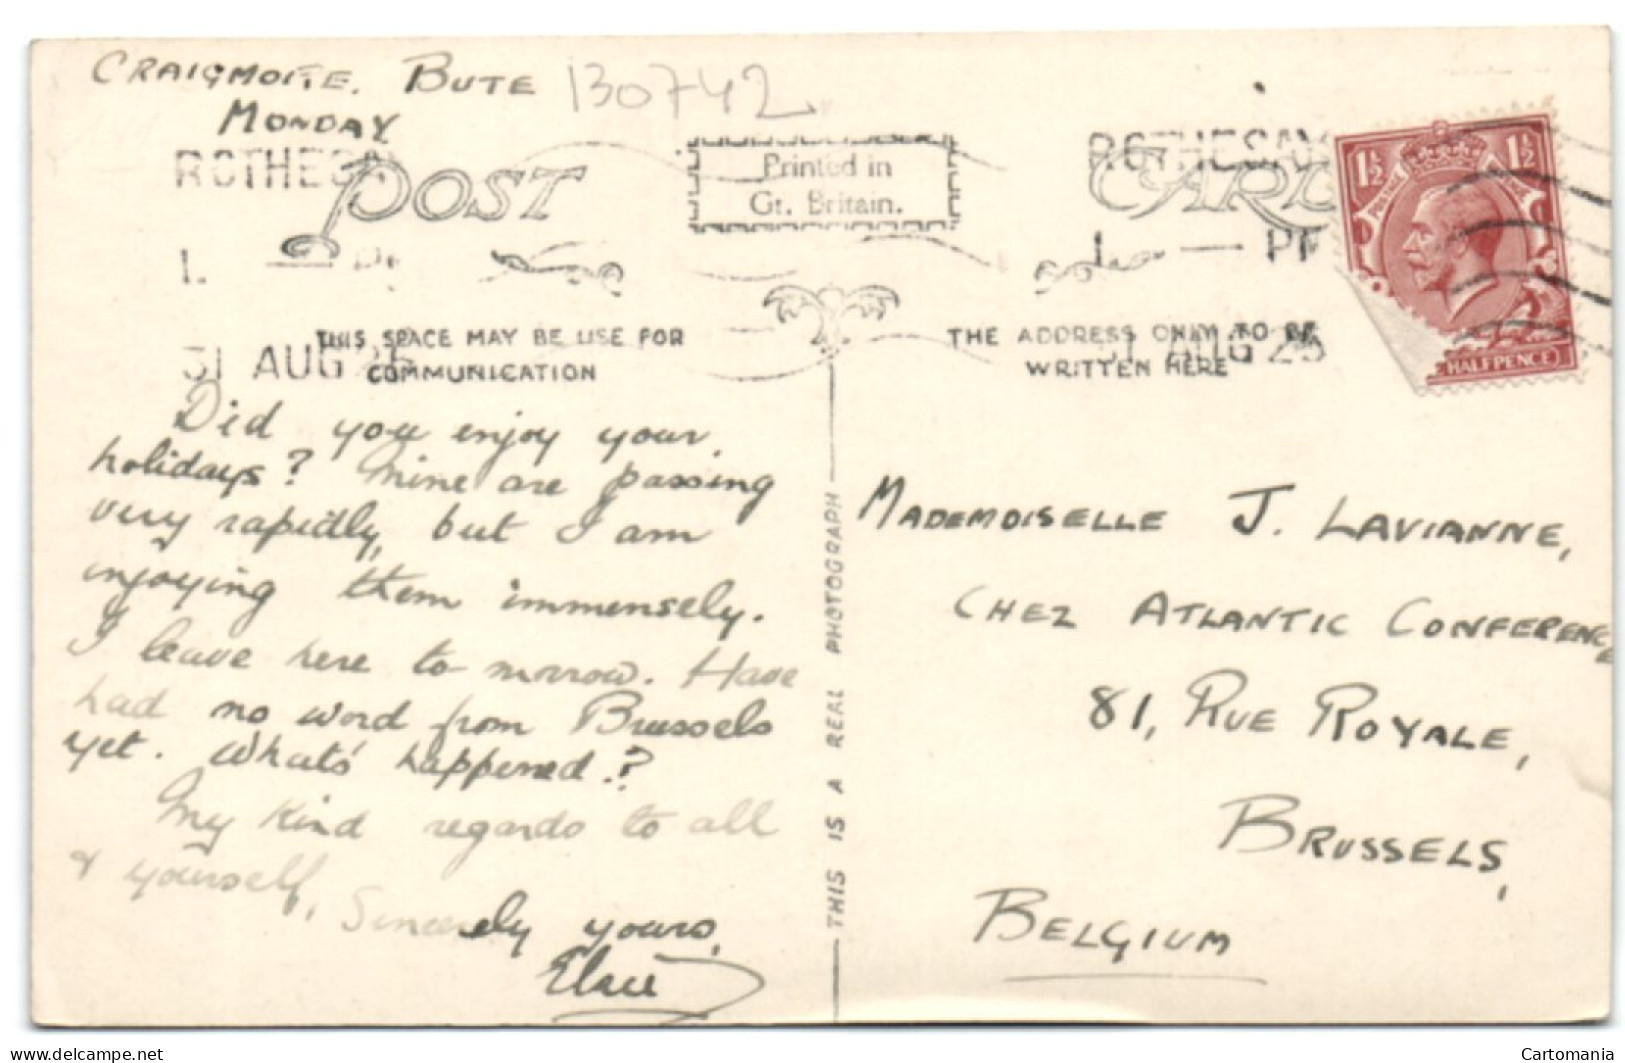 CRAIGMORE. BUTE
130742
MONDAY
ROTHESAY
POST
Printed in
Gt. Britain.
ROTHESAY
CARD
1½ 1½
PM
THIS SPACE MAY BE USE FOR
COMMUNICATION
31 AUG 25
THE ADDRESS ONLY TO BE
WRITTEN HERE
31 AUG 25
HALFPENCE
Did you enjoy your
holidays? Mine are passing
very rapidly, but I am
enjoying them immensely.
I leave here to morrow. Have
had no word from Brussels
yet. What's happened?
My kind regards to all
& yourself,
Sincerely yours,
THIS IS A REAL PHOTOGRAPH
MADEMOISELLE J. LAVIANNE,
CHEZ ATLANTIC CONFERENCE
81, RUE ROYALE,
BRUSSELS,
BELGIUM
delcampe.net
Cartomania